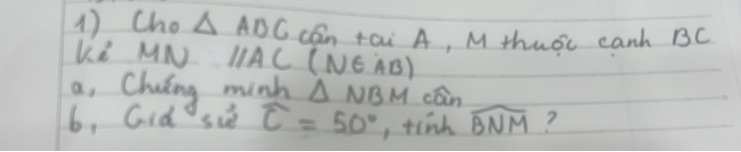 1) Cho Δ ABC cân tai A, M thuộc cạnh BC
Kẻ MN // AC (N ∈ AB)
a, Chứng minh Δ NBM cân
b, Giả sử Ĉ = 50°, tính \widehat{BNM} ?